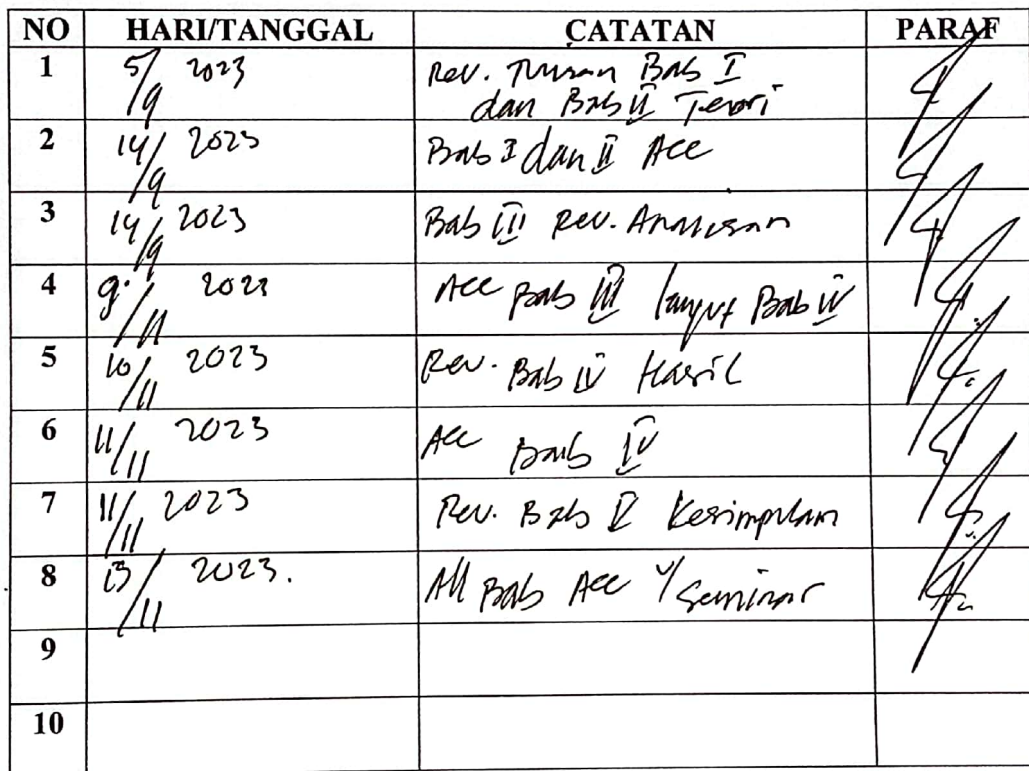 NO HARI/TANGGAL CATATAN PARAF
1 5/9 2023 Rev. Tulisan Bab I
dan Bab II Teori
2 14/9 2023 Bab I dan II Acc
3 14/9 2023 Bab III Rev.
4 9/11 2023 Acc Bab III lanjut Bab IV
5 10/11 2023 Rev. Bab IV Hasil
6 11/11 2023 Acc Bab IV
7 11/11 2023 Rev. Bab V Kesimpulan
8 13/11 2023. All Bab Acc Seminar
9
10